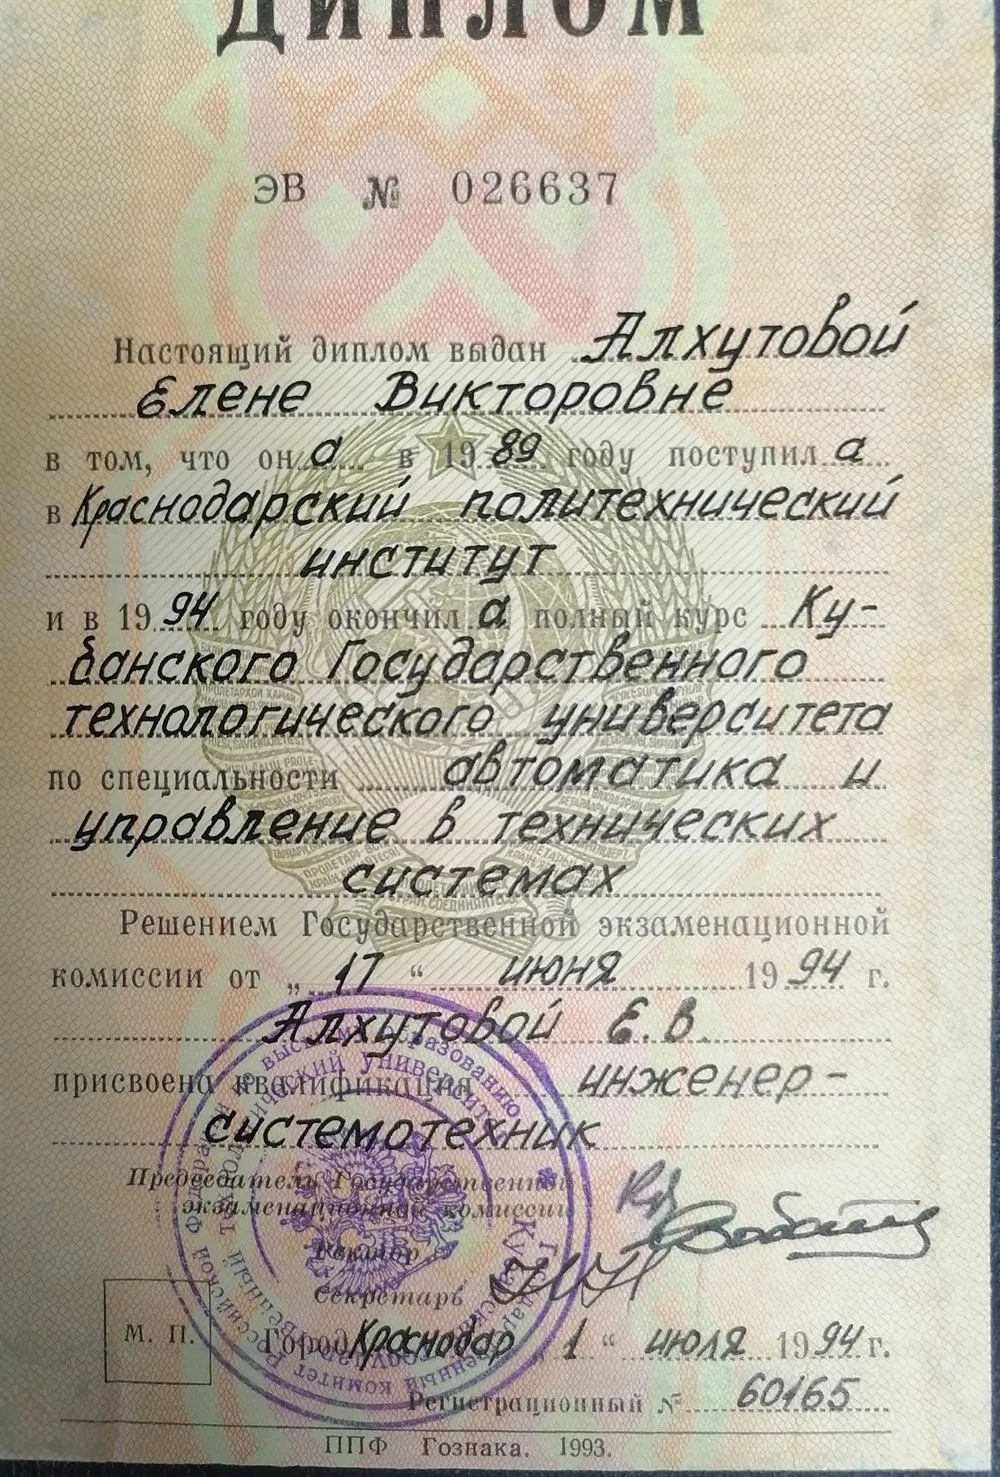 ДИПЛОМ
ЭВ № 026637
Настоящий диплом выдан Алхутовой
Елене Викторовне
в том, что он а в 19 89 году поступил а
в Краснодарский политехнический
институт
и в 19 94 году окончил а полный курс Ку-
банского Государственного
технологического университета
по специальности автоматика и
управление в технических
системах
Решением Государственной экзаменационной
комиссии от „ 17 “ июня 19 94 г.
Алхутовой Е.В.
присвоена квалификация инженер-
системотехник
Председатель Государственной
экзаменационной комиссии
Ректор
Секретарь
М. П.
Город Краснодар „ 1 “ июля 19 94 г.
Регистрационный № 60165
ППФ Гознака. 1993.